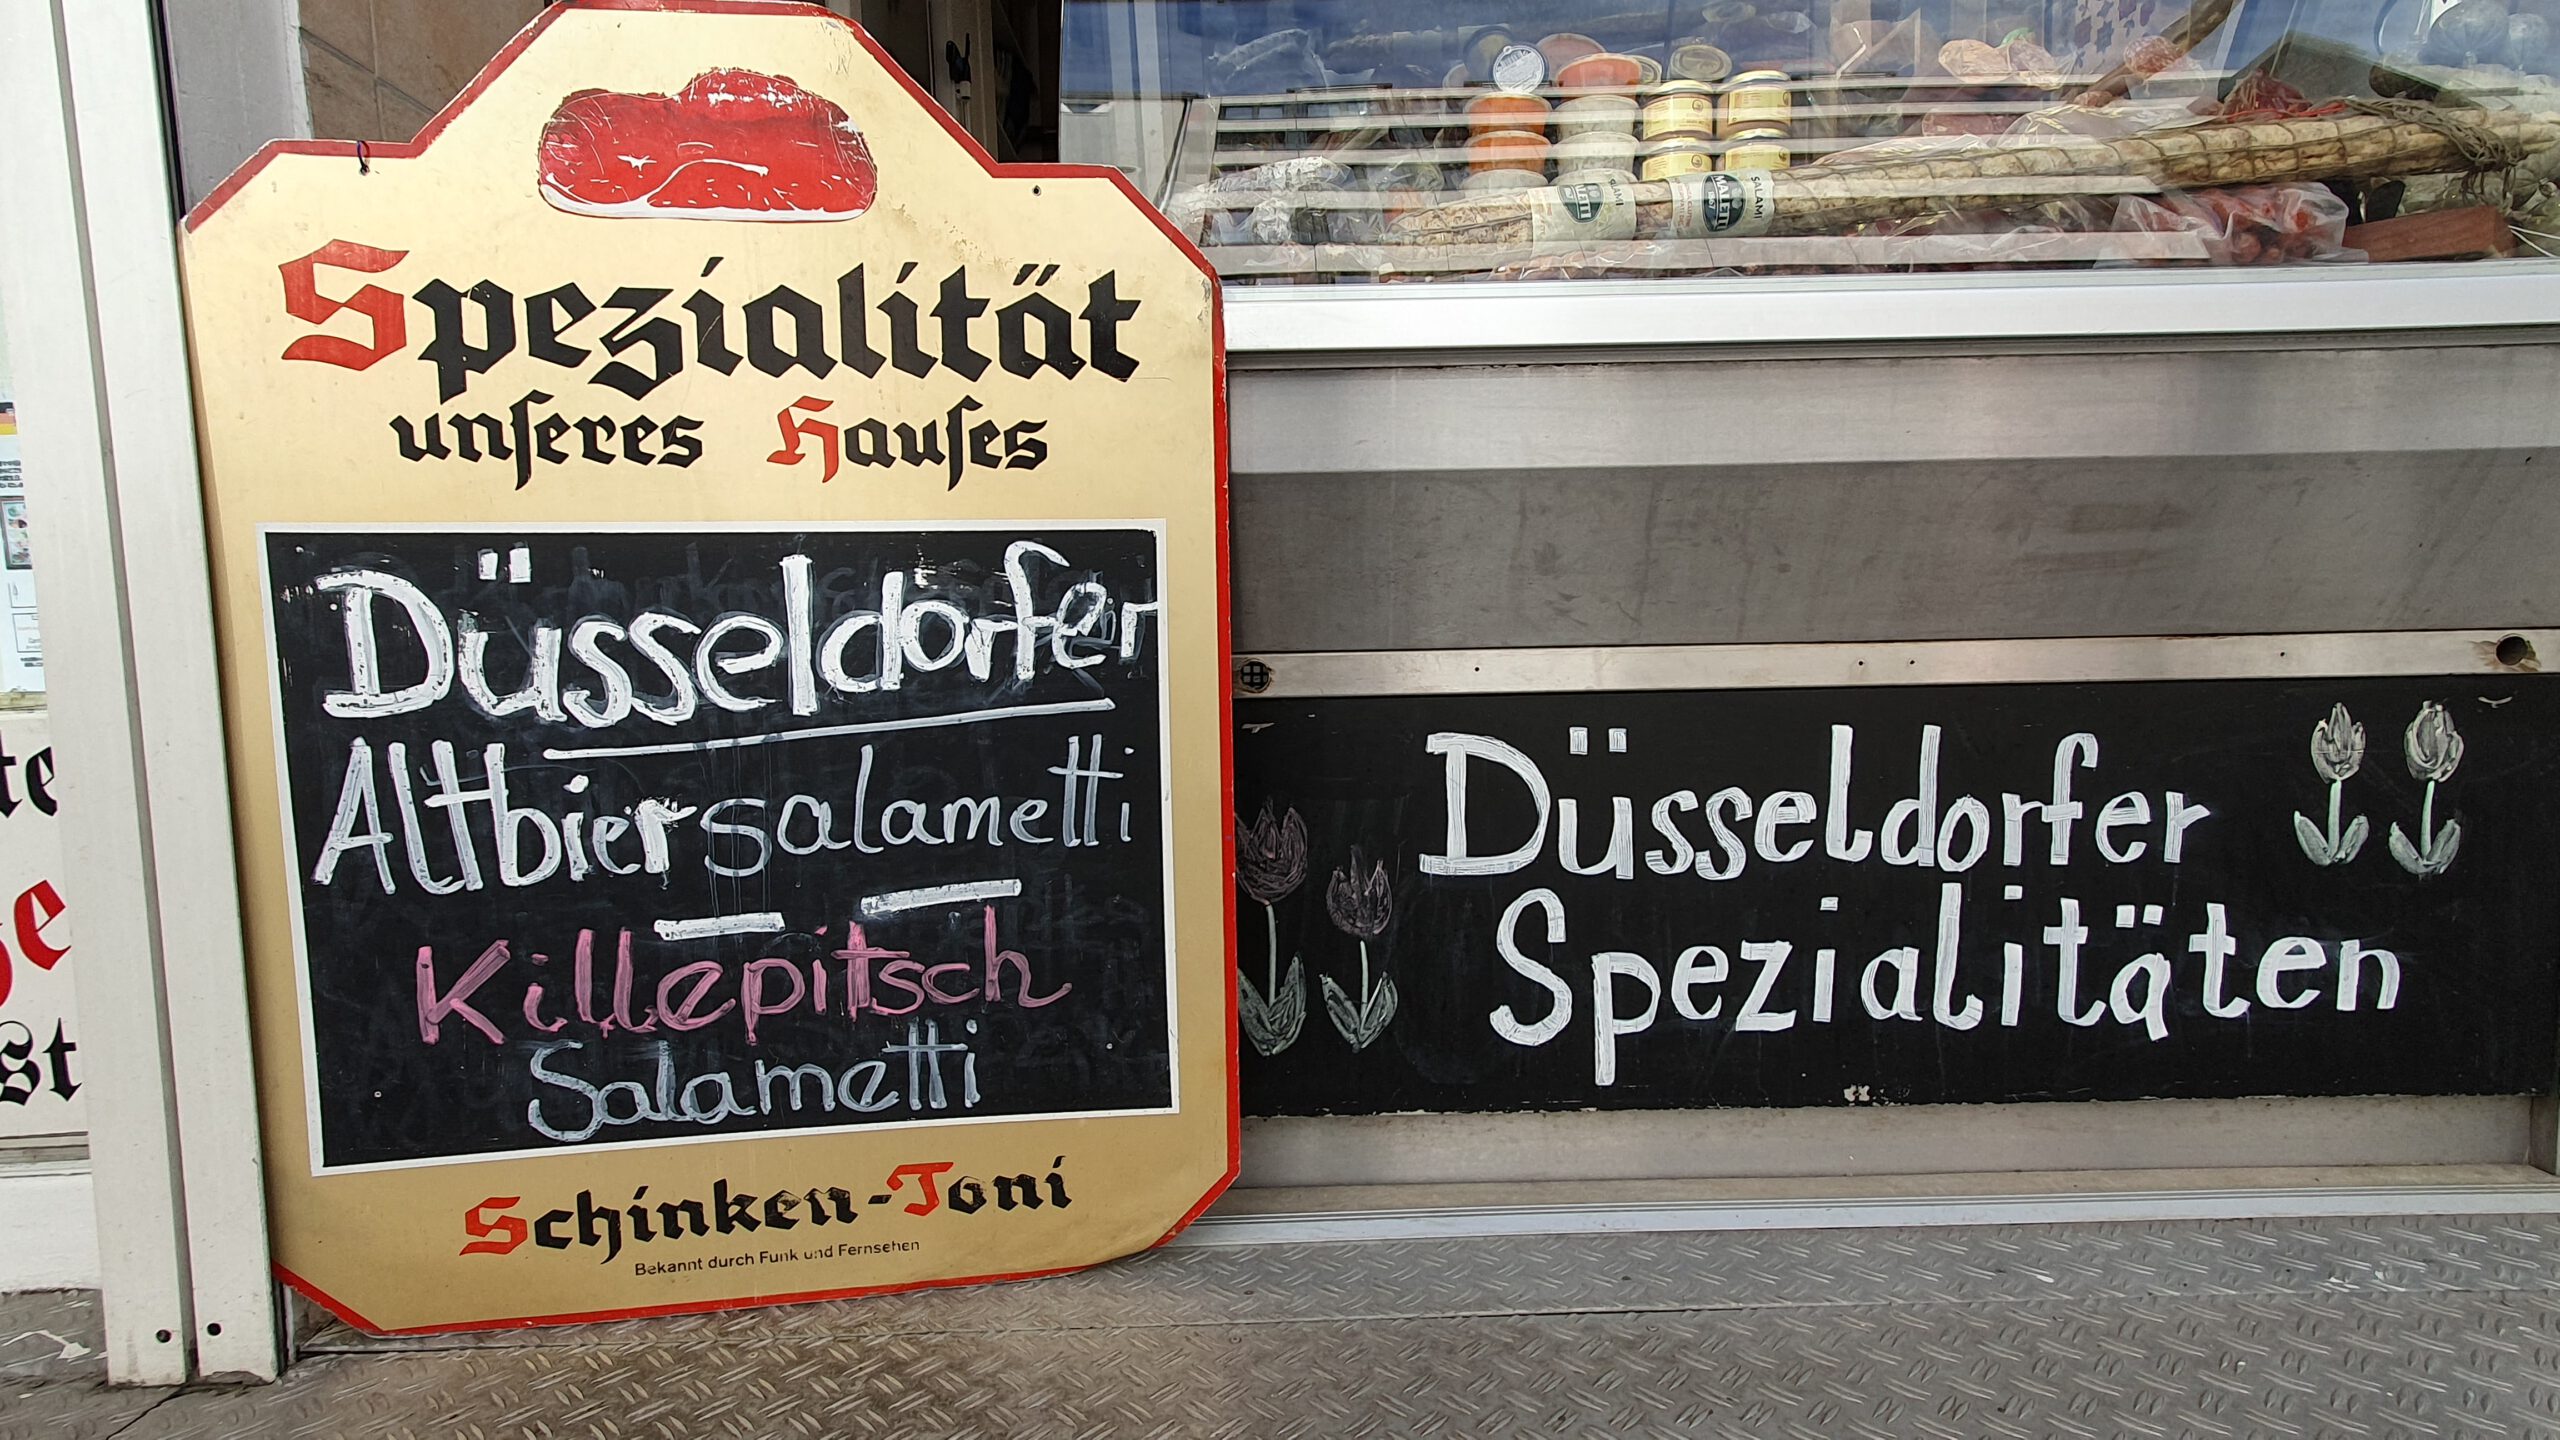 Spezialität
unſeres Hauſes
Düsseldorfer
Altbiersalametti
Killepitsch
Salametti
Schinken-Toni
Bekannt durch Funk und Fernsehen
Düsseldorfer
Spezialitäten
SALAMI
SALAMI
te
st